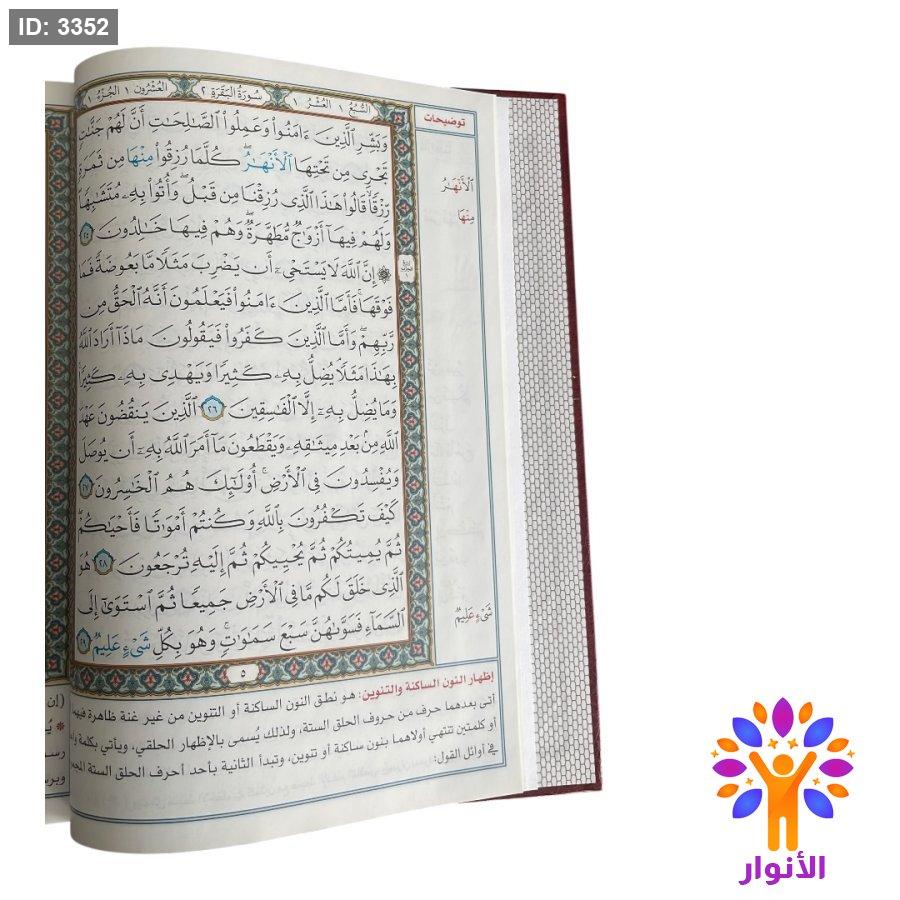 ID: 3352
السُّبُع ١ العُشْر ١ سُورَةُ البَقَرَةِ ٢ العُشْرُون ١ الجُزْء ١
توضيحات
وَبَشِّرِ ٱلَّذِينَ ءَامَنُواْ وَعَمِلُواْ ٱلصَّٰلِحَٰتِ أَنَّ لَهُمۡ جَنَّٰتٖ
تَجۡرِي مِن تَحۡتِهَا ٱلۡأَنۡهَٰرُۖ كُلَّمَا رُزِقُواْ مِنۡهَا مِن ثَمَرَةٖ
رِّزۡقٗا قَالُواْ هَٰذَا ٱلَّذِي رُزِقۡنَا مِن قَبۡلُۖ وَأُتُواْ بِهِۦ مُتَشَٰبِهٗاۖ
وَلَهُمۡ فِيهَآ أَزۡوَٰجٞ مُّطَهَّرَةٞۖ وَهُمۡ فِيهَا خَٰلِدُونَ ٢٥
۞ إِنَّ ٱللَّهَ لَا يَسۡتَحۡيِۦٓ أَن يَضۡرِبَ مَثَلٗا مَّا بَعُوضَةٗ فَمَا
فَوۡقَهَاۚ فَأَمَّا ٱلَّذِينَ ءَامَنُواْ فَيَعۡلَمُونَ أَنَّهُ ٱلۡحَقُّ مِن
رَّبِّهِمۡۖ وَأَمَّا ٱلَّذِينَ كَفَرُواْ فَيَقُولُونَ مَاذَآ أَرَادَ ٱللَّهُ
بِهَٰذَا مَثَلٗاۘ يُضِلُّ بِهِۦ كَثِيرٗا وَيَهۡدِي بِهِۦ كَثِيرٗاۚ
وَمَا يُضِلُّ بِهِۦٓ إِلَّا ٱلۡفَٰسِقِينَ ٢٦ ٱلَّذِينَ يَنقُضُونَ عَهۡدَ
ٱللَّهِ مِنۢ بَعۡدِ مِيثَٰقِهِۦ وَيَقۡطَعُونَ مَآ أَمَرَ ٱللَّهُ بِهِۦٓ أَن يُوصَلَ
وَيُفۡسِدُونَ فِي ٱلۡأَرۡضِۚ أُوْلَٰٓئِكَ هُمُ ٱلۡخَٰسِرُونَ ٢٧
كَيۡفَ تَكۡفُرُونَ بِٱللَّهِ وَكُنتُمۡ أَمۡوَٰتٗا فَأَحۡيَٰكُمۡۖ
ثُمَّ يُمِيتُكُمۡ ثُمَّ يُحۡيِيكُمۡ ثُمَّ إِلَيۡهِ تُرۡجَعُونَ ٢٨ هُوَ
ٱلَّذِي خَلَقَ لَكُم مَّا فِي ٱلۡأَرۡضِ جَمِيعٗا ثُمَّ ٱسۡتَوَىٰٓ إِلَى
ٱلسَّمَآءِ فَسَوَّىٰهُنَّ سَبۡعَ سَمَٰوَٰتٖۚ وَهُوَ بِكُلِّ شَيۡءٍ عَلِيمٞ ٢٩
ٱلۡأَنۡهَٰرُ
مِنۡهَا
شَيۡءٍ عَلِيمٞ
٥
إظهار النون الساكنة والتنوين: هو نطق النون الساكنة أو التنوين من غير غنة ظاهرة فيهما
أتى بعدهما حرف من حروف الحلق الستة، ولذلك يُسمى بالإظهار الحلقي، ويأتي بكلمة
أو كلمتين تنتهي أولاهما بنون ساكنة أو تنوين، وتبدأ الثانية بأحد أحرف الحلق الستة
في أوائل القول:
الأنوار